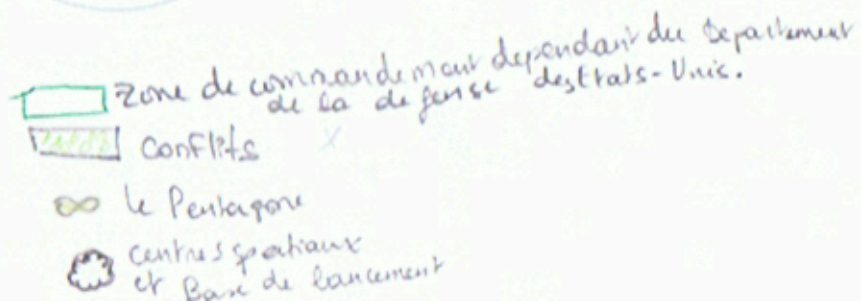 Zone de commandement dependant du Departement
de la defense des Etats-Unis.
Conflits
le Pentagone
centres spatiaux
et Base de lancement